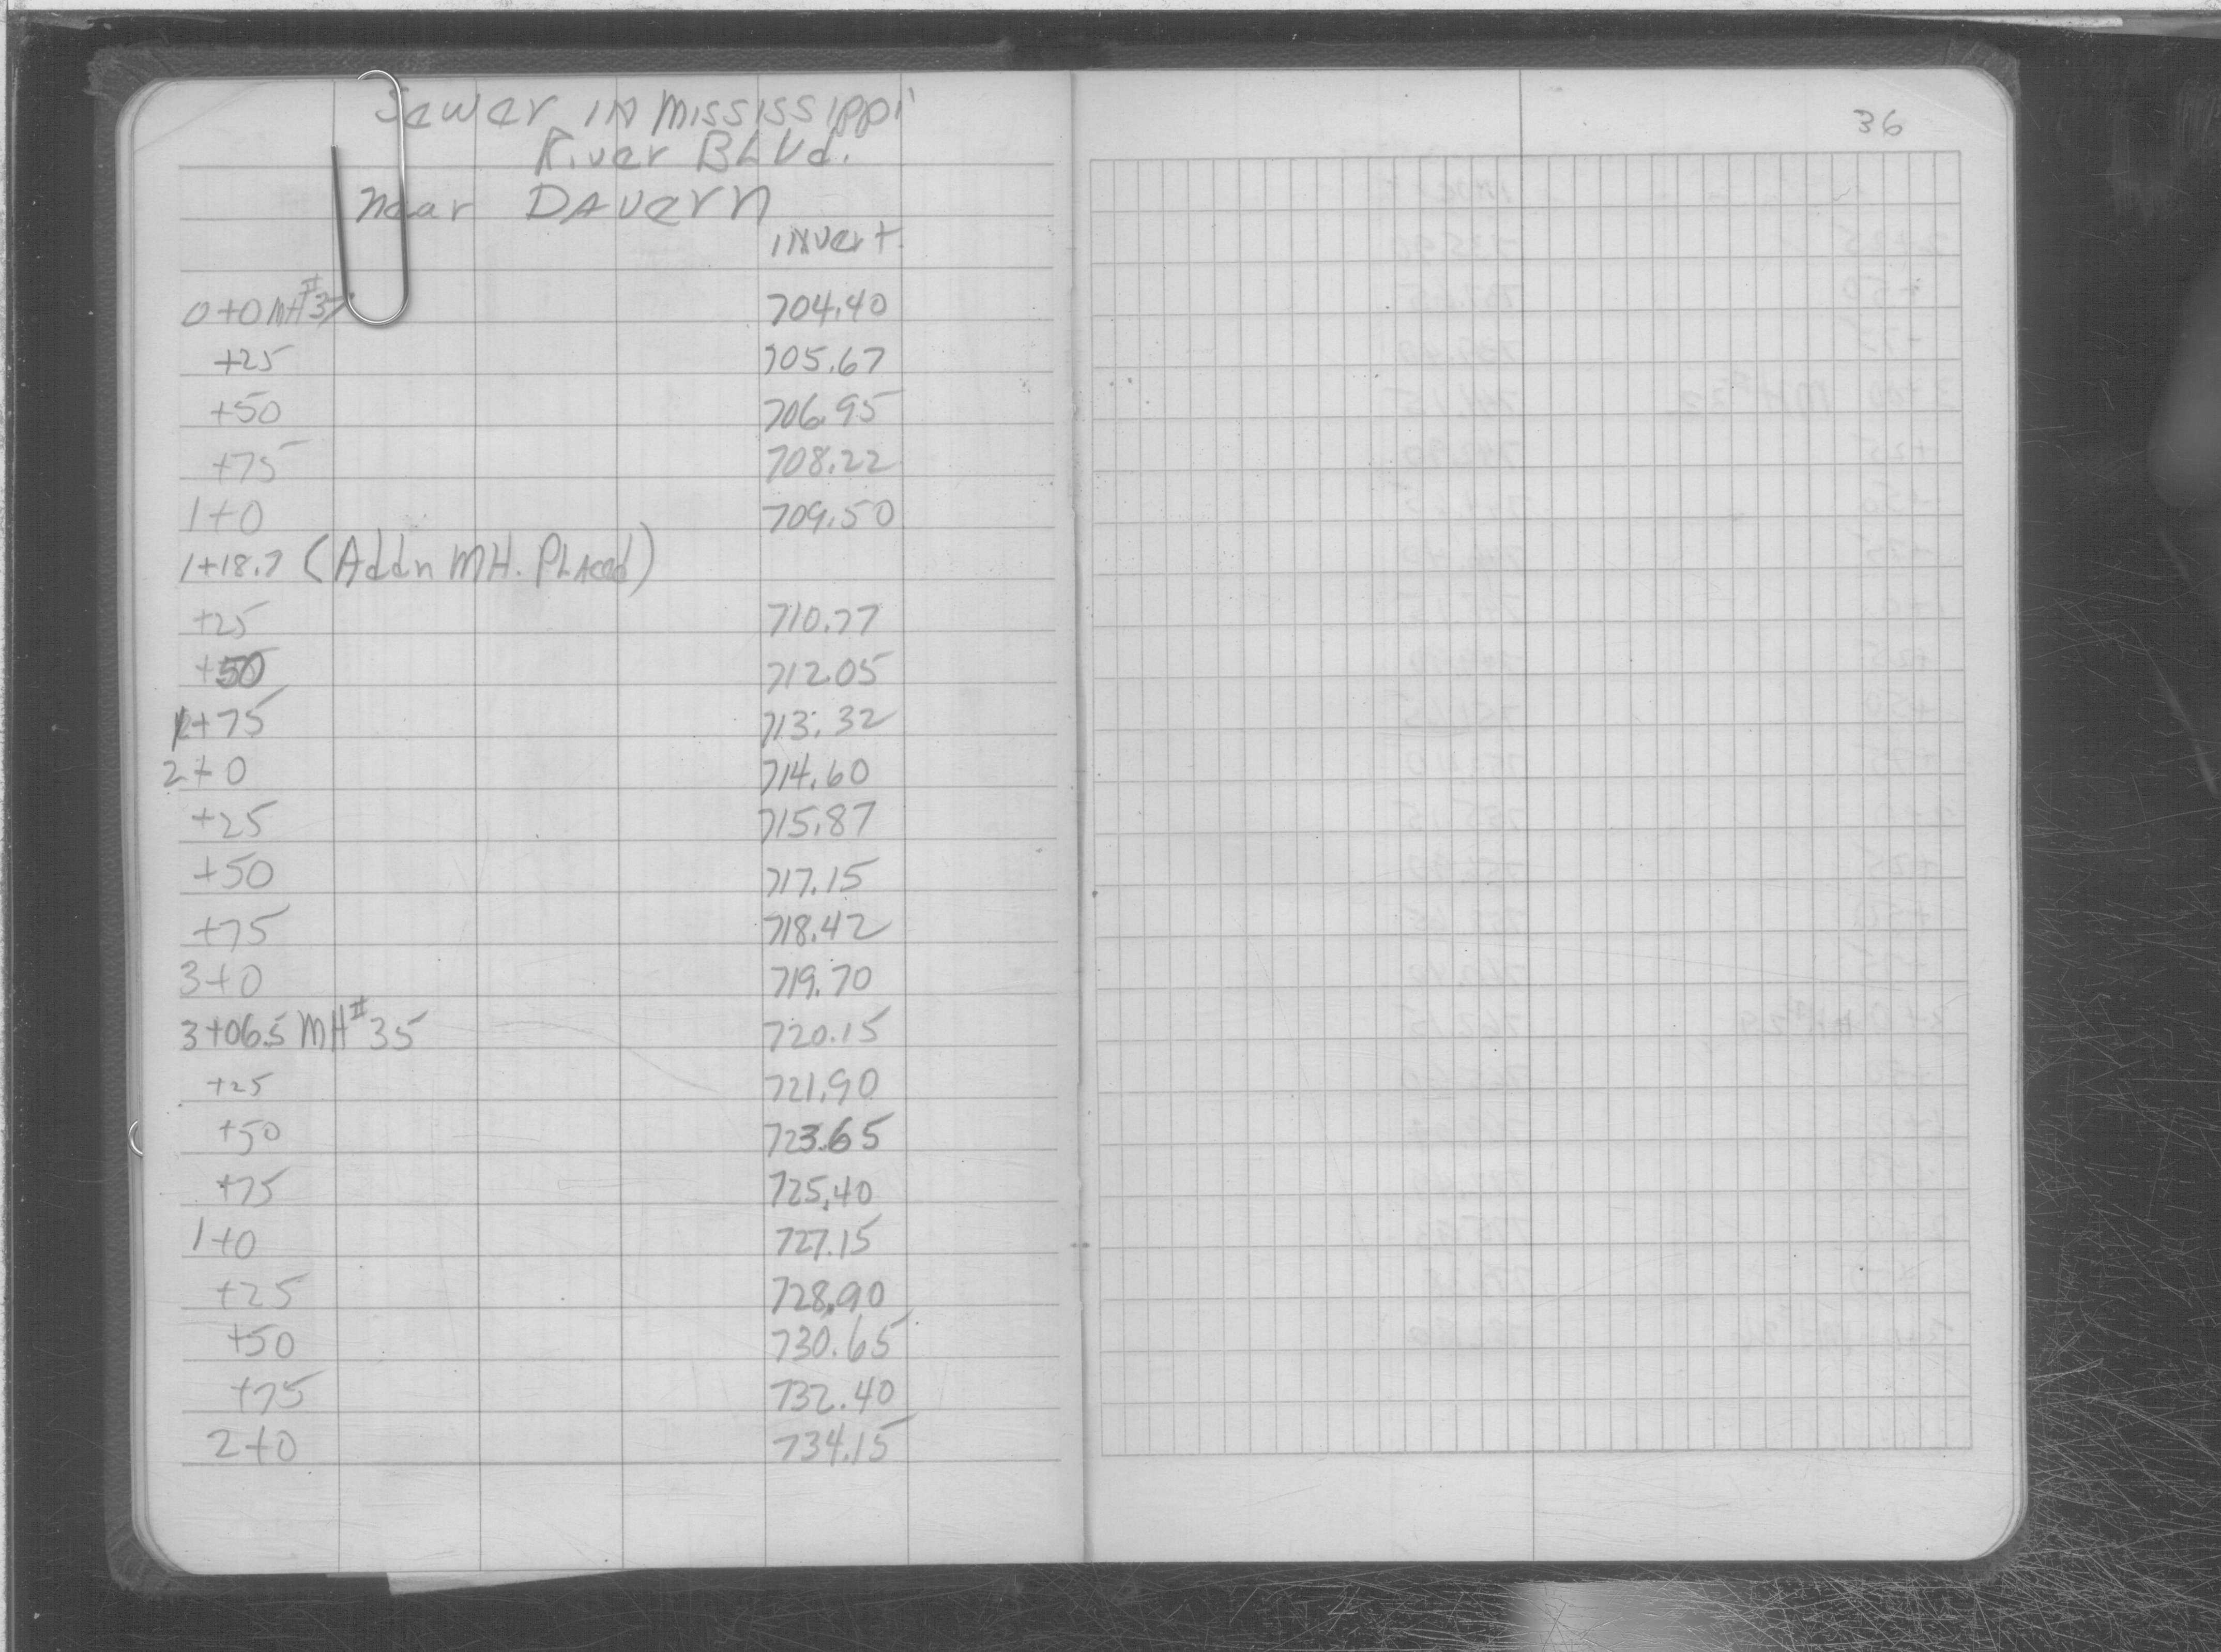 Sewer in Mississippi
River BLVd.
near DAVern
invert
0+0 MH# 704.40
+25 705.67
+50 706.95
+75 708.22
1+0 709.50
1+18.7 (Addn MH. PLAced)
+25 710.77
+50 712.05
1+75 713.32
2+0 714.60
+25 715.87
+50 717.15
+75 718.42
3+0 719.70
3+06.5 MH# 35 720.15
+25 721.90
+50 723.65
+75 725.40
1+0 727.15
+25 728.90
+50 730.65
+75 732.40
2+0 734.15
36